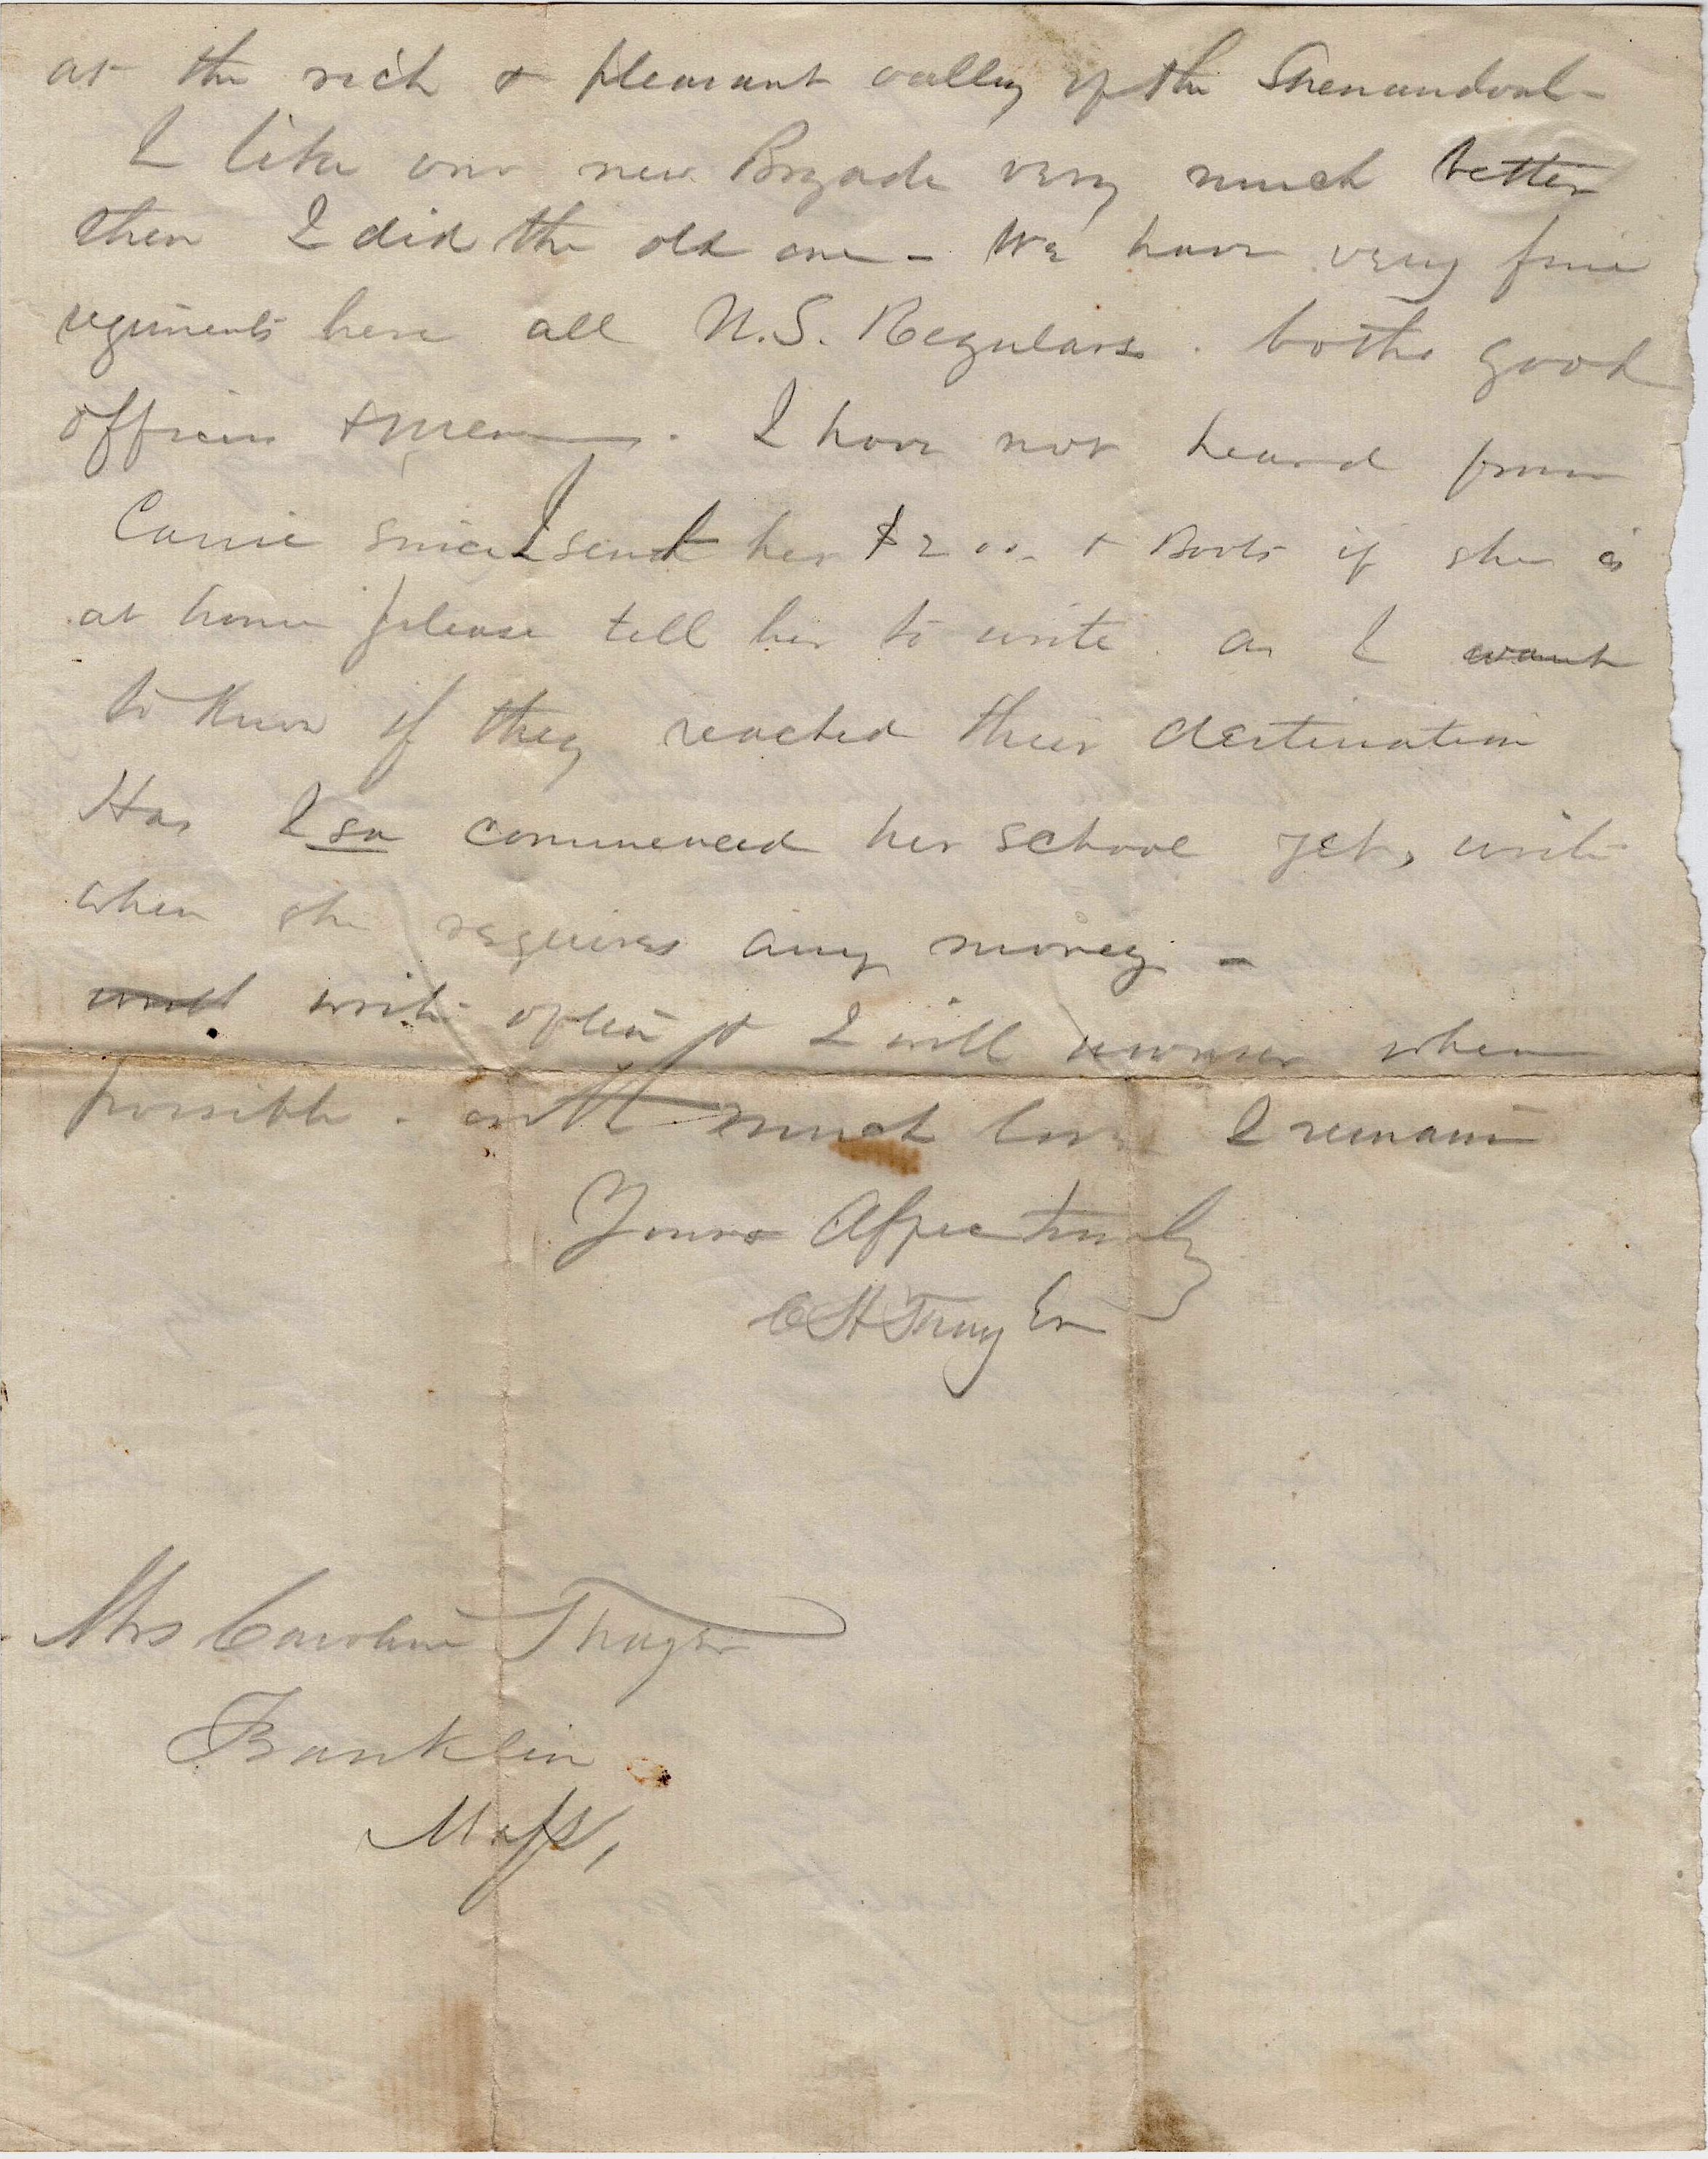 at the rich & pleasant valley of the Shenandoah -
I like our new Brigade very much better
then I did the old one - We have very fine
regiments here all U.S. Regulars . bothe good
officers & men . I have not heard from
Carrie since I send her $2 & Boots if she is
at home please tell her to write . as I want
to know if they reached their destination
Has Isa commenced her school yet, write
when she requires any money -
write often & I will answer when
possible . with much love I remain
Yours Affectionately
C H Thayer
Mrs Caroline Thayer
Franklin
Mass,